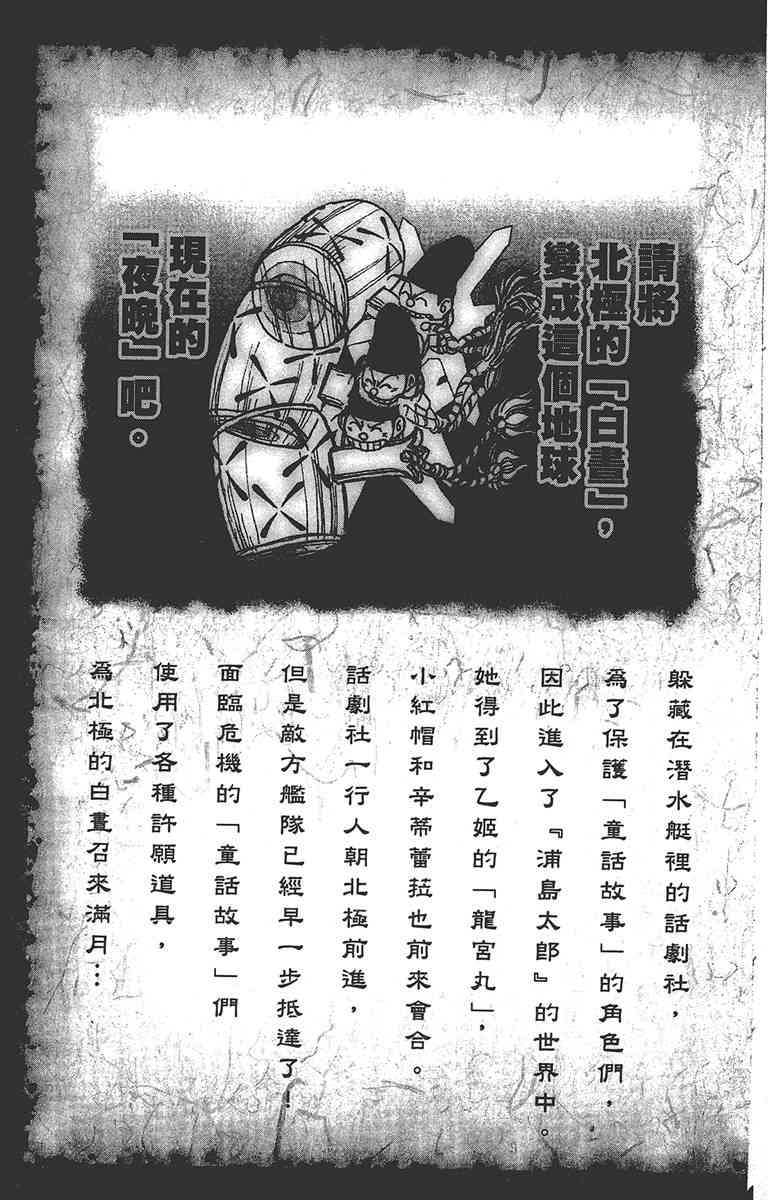 請將
北極的「白晝」,
變成這個地球
現在的
「夜晚」吧。
躲藏在潛水艇裡的話劇社,
為了保護「童話故事」的角色們,
因此進入了『浦島太郎』的世界中。
她得到了乙姬的「龍宮丸」,
小紅帽和辛蒂蕾菈也前來會合。
話劇社一行人朝北極前進,
但是敵方艦隊已經早一步抵達了!
面臨危機的「童話故事」們
使用了各種許願道具,
為北極的白晝召來滿月…